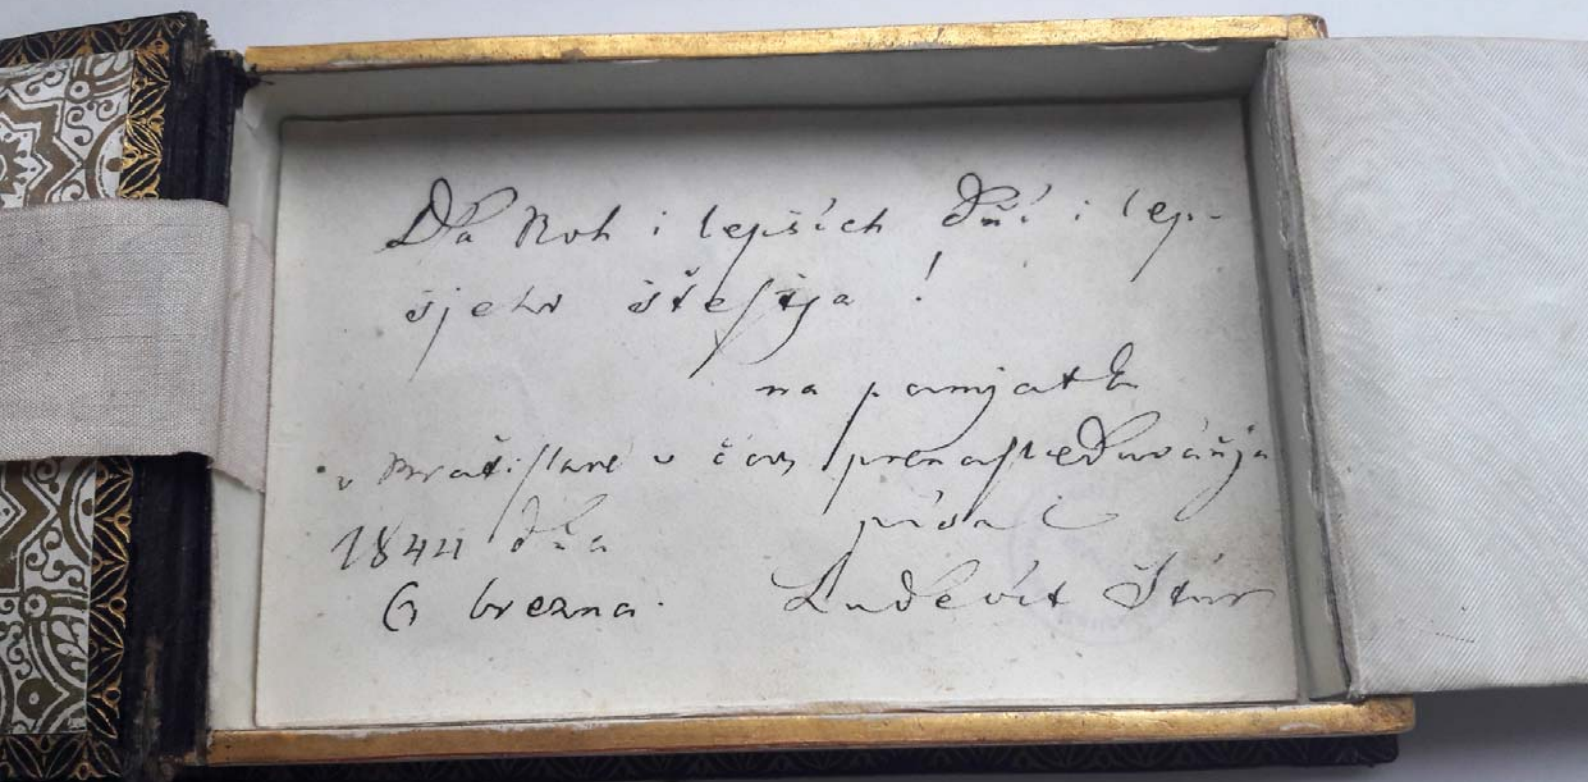 Dá Boh i lepších dní i lep-
šjeho šťesťja!
na pamjatku
v Braťislavě v čas prenasleduváňja
1844 dňa písal
6 brezna. Ludevít Štúr